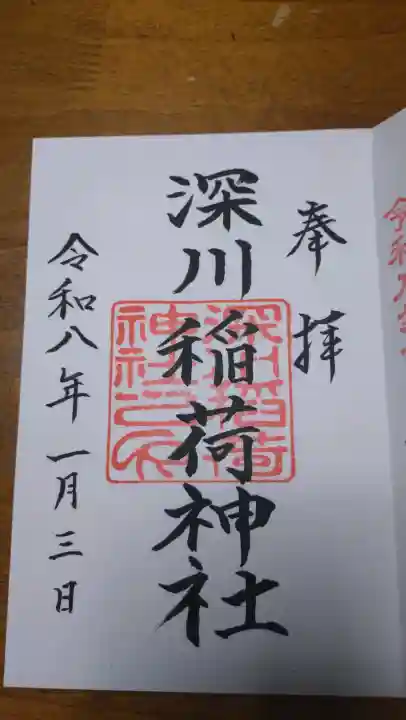 奉拝
深川稲荷神社
深川稲荷
神社之印
令和八年一月三日
令和